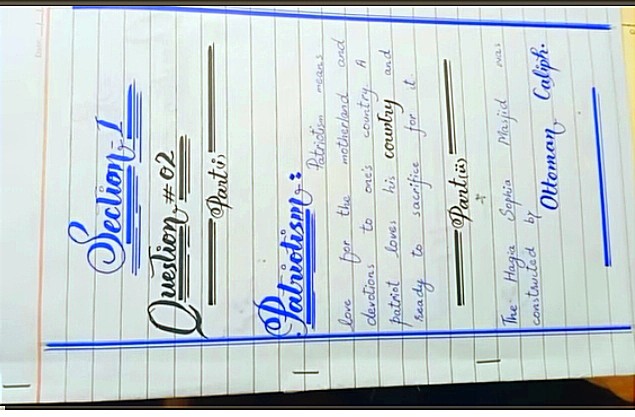 Section-1
Question # 02
Part i
Patriotism:
Patriotism means
love for the motherland and
devotions to one's country. A
patriot loves his country and
ready to sacrifice for it.
Part ii
The Hagia Sophia Masjid was
constructed by Ottoman Caliph.